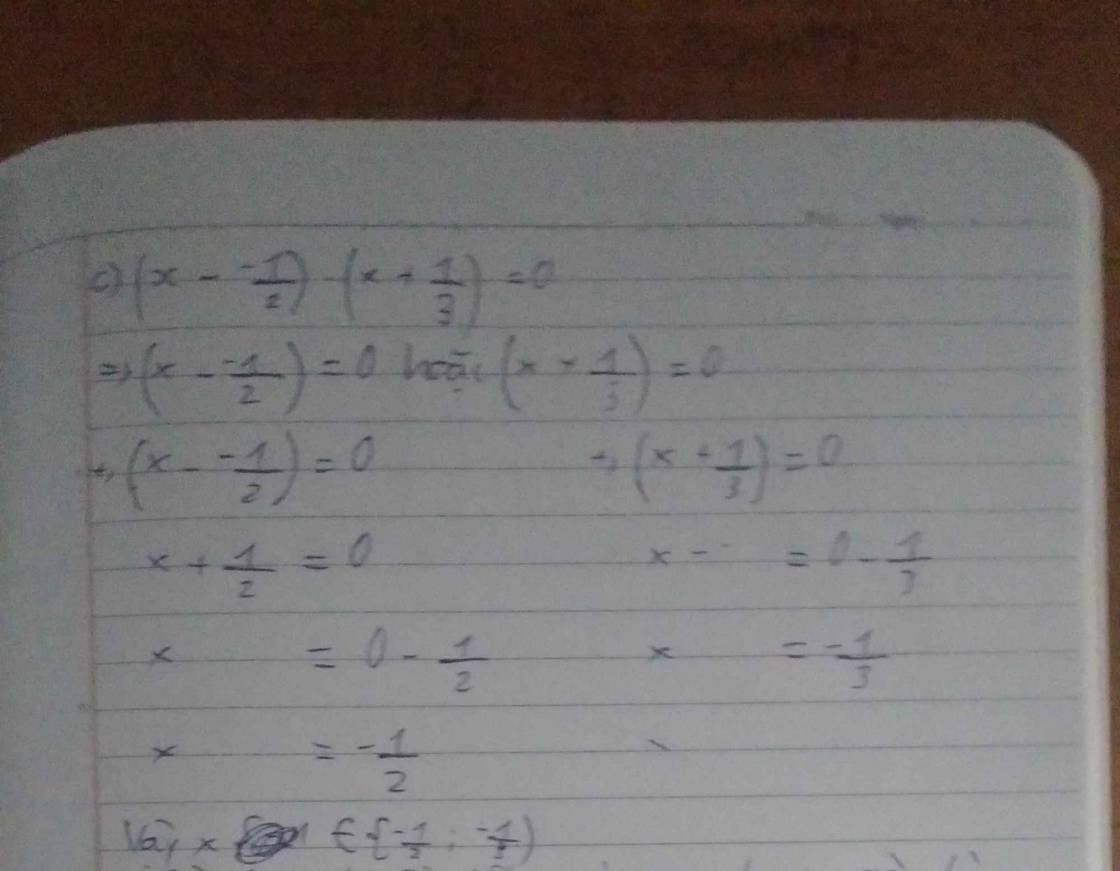 c) (x - -1/2) · (x + 1/3) = 0
=> (x - -1/2) = 0 hoặc (x + 1/3) = 0
→ (x - -1/2) = 0 → (x + 1/3) = 0
x + 1/2 = 0 x = 0 - 1/3
x = 0 - 1/2 x = -1/3
x = -1/2
Vậy x ∈ {-1/2 ; -1/3}